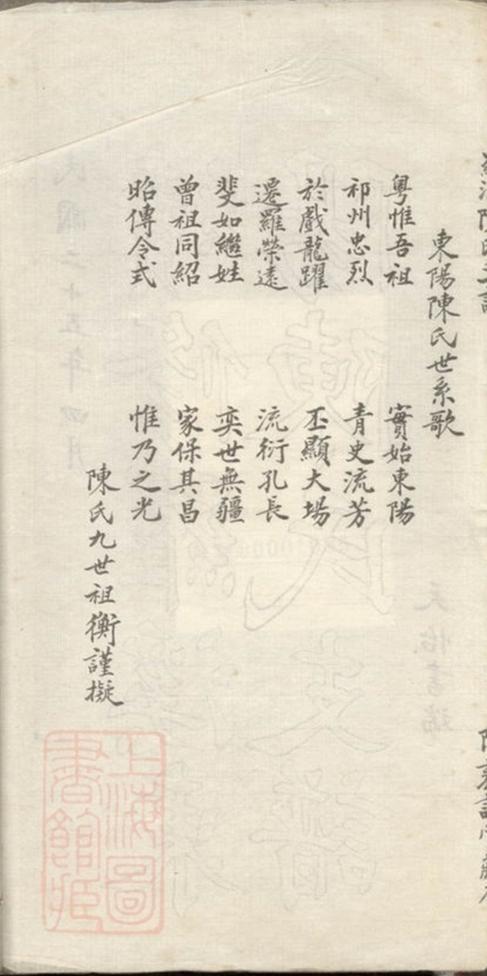 東陽陳氏世系歌
粵惟吾祖 實始東陽
祁州忠烈 青史流芳
於戲龍躍 丕顯大場
遷羅榮遠 流衍孔長
斐如繼姓 奕世無疆
曾祖同紹 家保其昌
昭傳令式 惟乃之光
陳氏九世祖衡謹擬
上海圖
書館藏